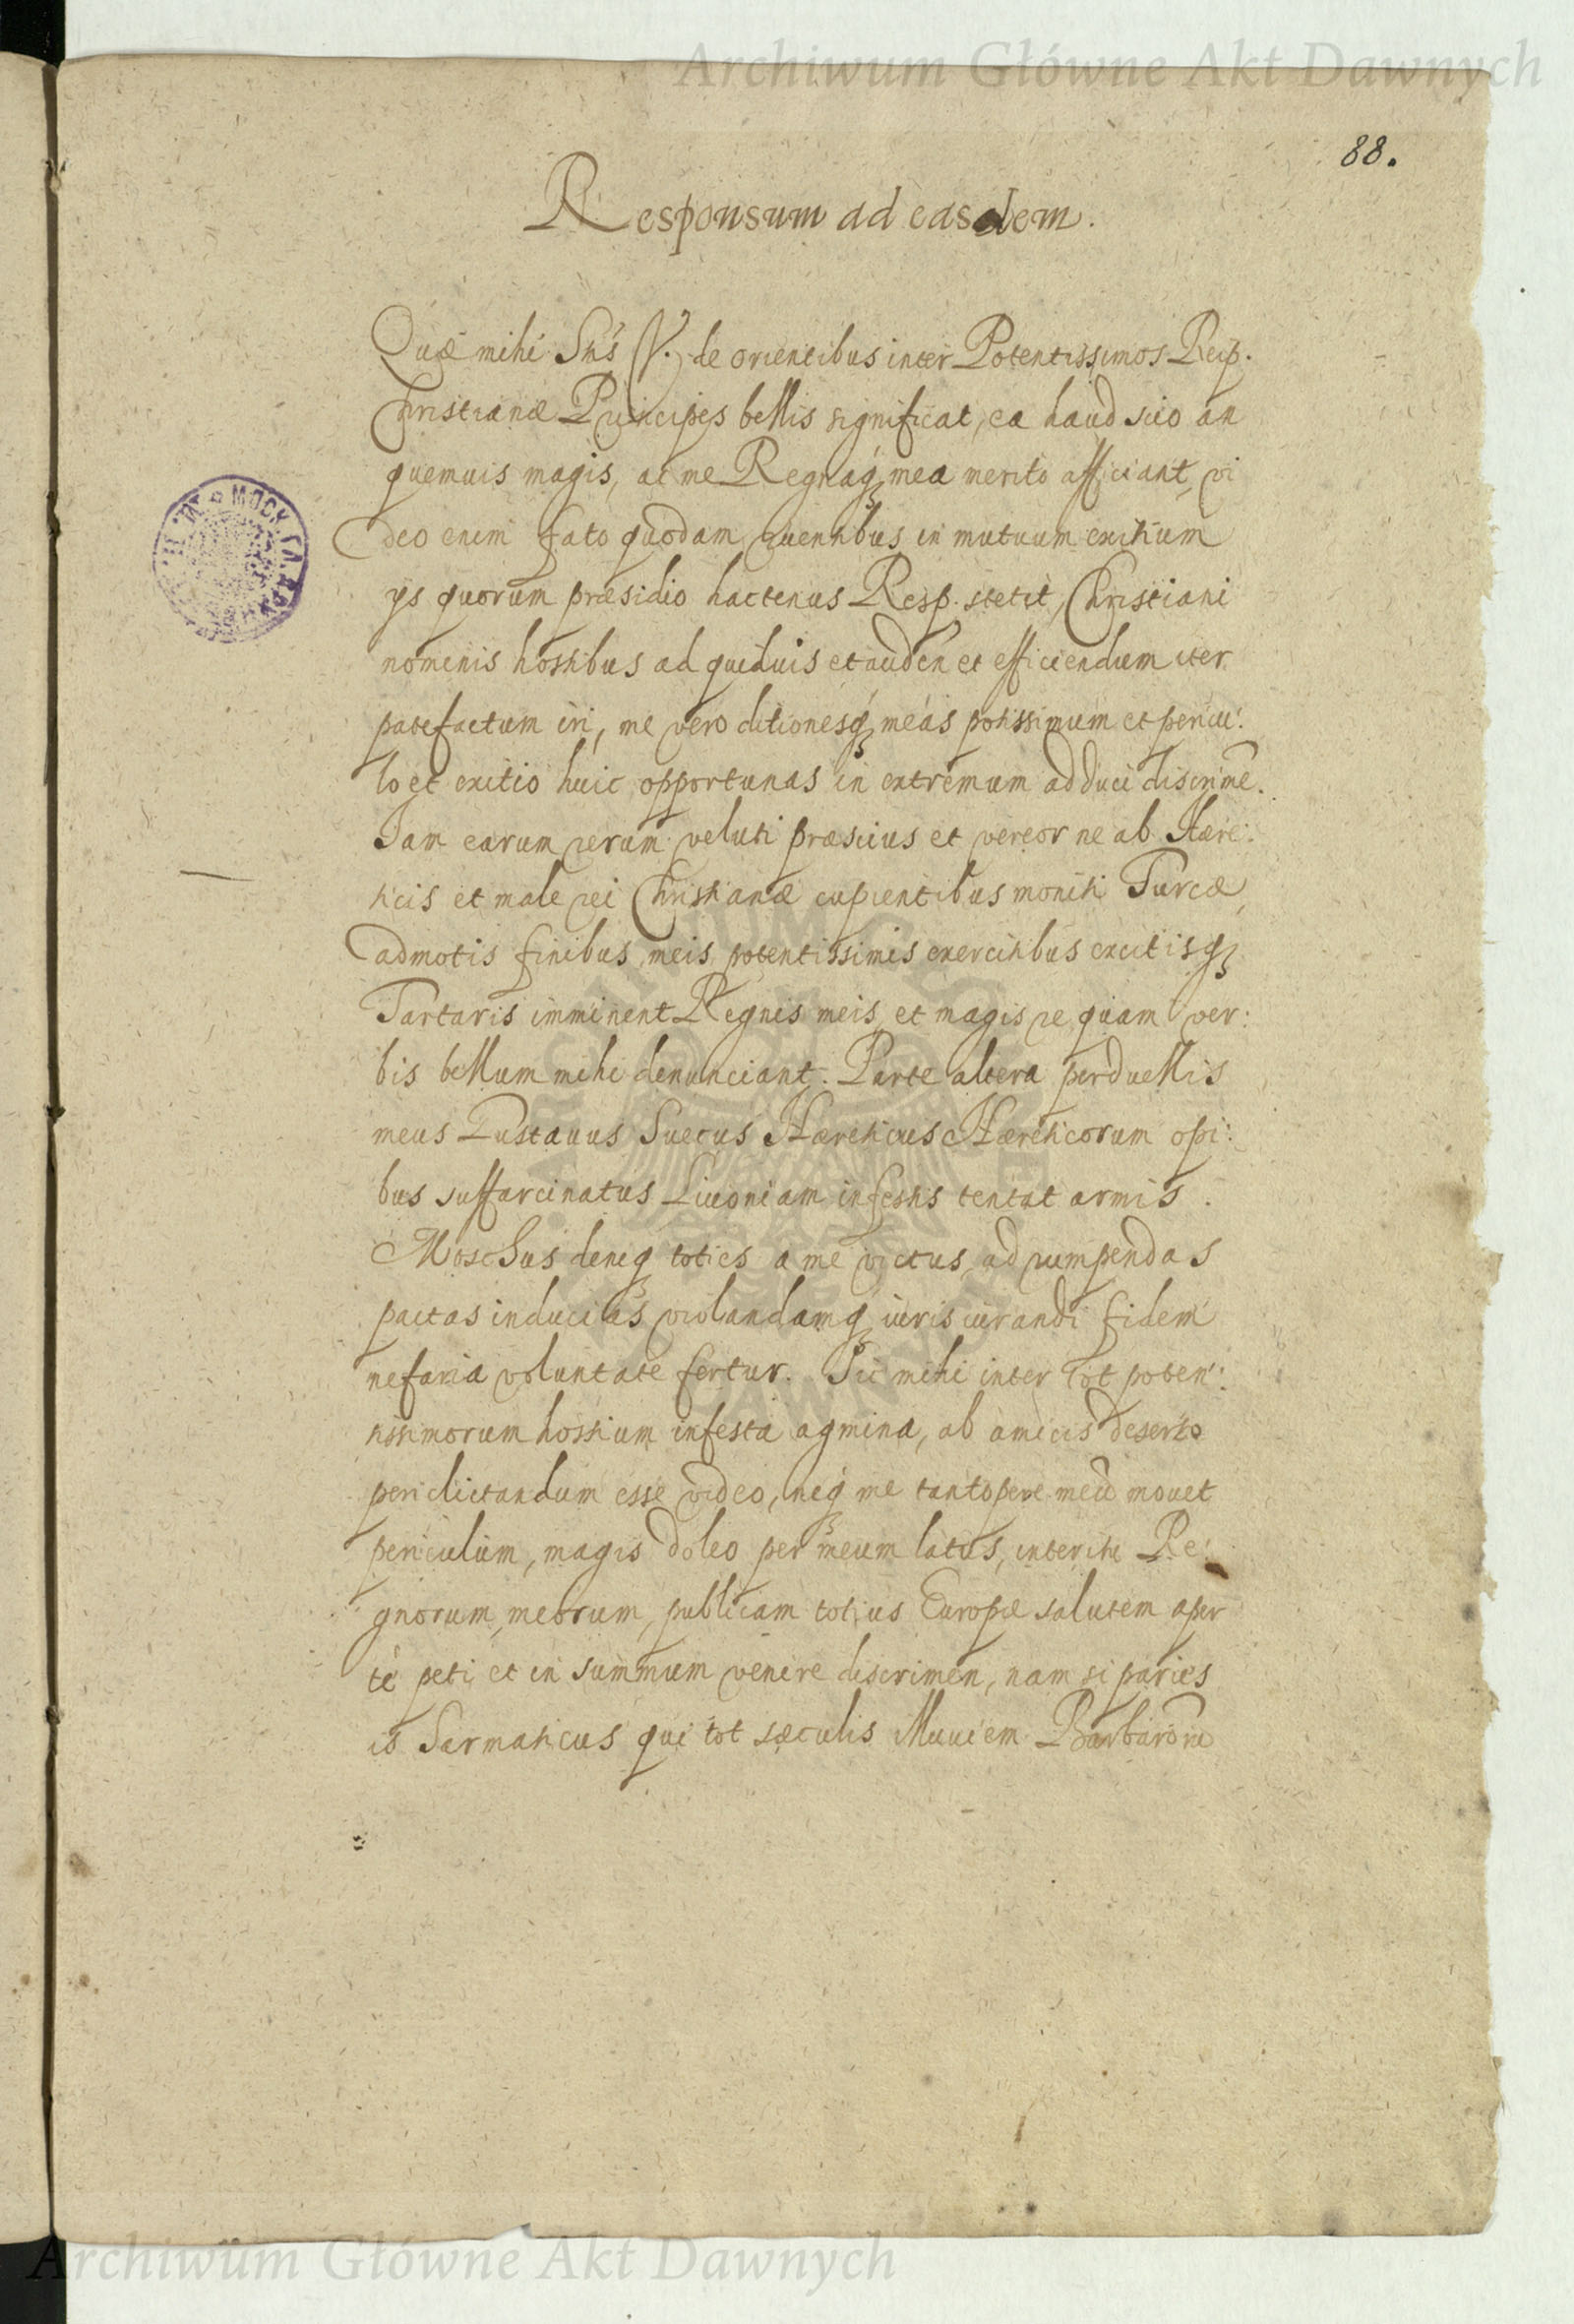 Archiwum Główne Akt Dawnych
88.
Responsum ad easdem.
Quæ mihi Sñs V. de orientibus inter Potentissimos Reip.
Christianæ Principes bellis significat, ea haud scio an
quemuis magis, ac me Regnaq mea merito afficiant, vi
deo enim fato quodam ruentibus in mutuum exitium
ijs quorum præsidio hactenus Resp. stetit, Christiani
nomenis hostibus ad quiduis et auden et efficiendum iter
patefactum iri, me vero ditionesq meas potissimum et pericu:
lo et exitio huic opportunas in extremum adduci discrime.
Iam earum rerum veluti præscius et vereor ne ab Hære:
ticis et male rei Christianæ cupientibus moniti Turcæ
admotis finibus meis potentissimis exercitibus excitisq
Tartaris imminent Regnis meis, et magis re quam ver:
bis bellum mihi denunciant. Parte altera perduellis
meus Gustauus Suecus Hæreticus Hæreticorum opi:
bus suffarcinatus Liuoniam infestis tentat armis.
Moschus deniq toties a me victus, ad rumpendas
pactas inducias violandamq iuris iurandi fidem
nefaria voluntate fertur. Sic mihi inter tot poten:
tissimorum hostium infesta agmina, ab amicis deserto
periclictandum esse video, neq me tantopere meū mouet
periculum, magis doleo per meum latus, interitu Re:
gnorum meorum, publicam totius Europæ salutem aper
té peti et in summum venire discrimen, nam si paries
is Sarmaticus qui tot sæculis illuuiem Barbarorū
МОСК. ГЛ. АРХИВ
Archiwum Główne Akt Dawnych